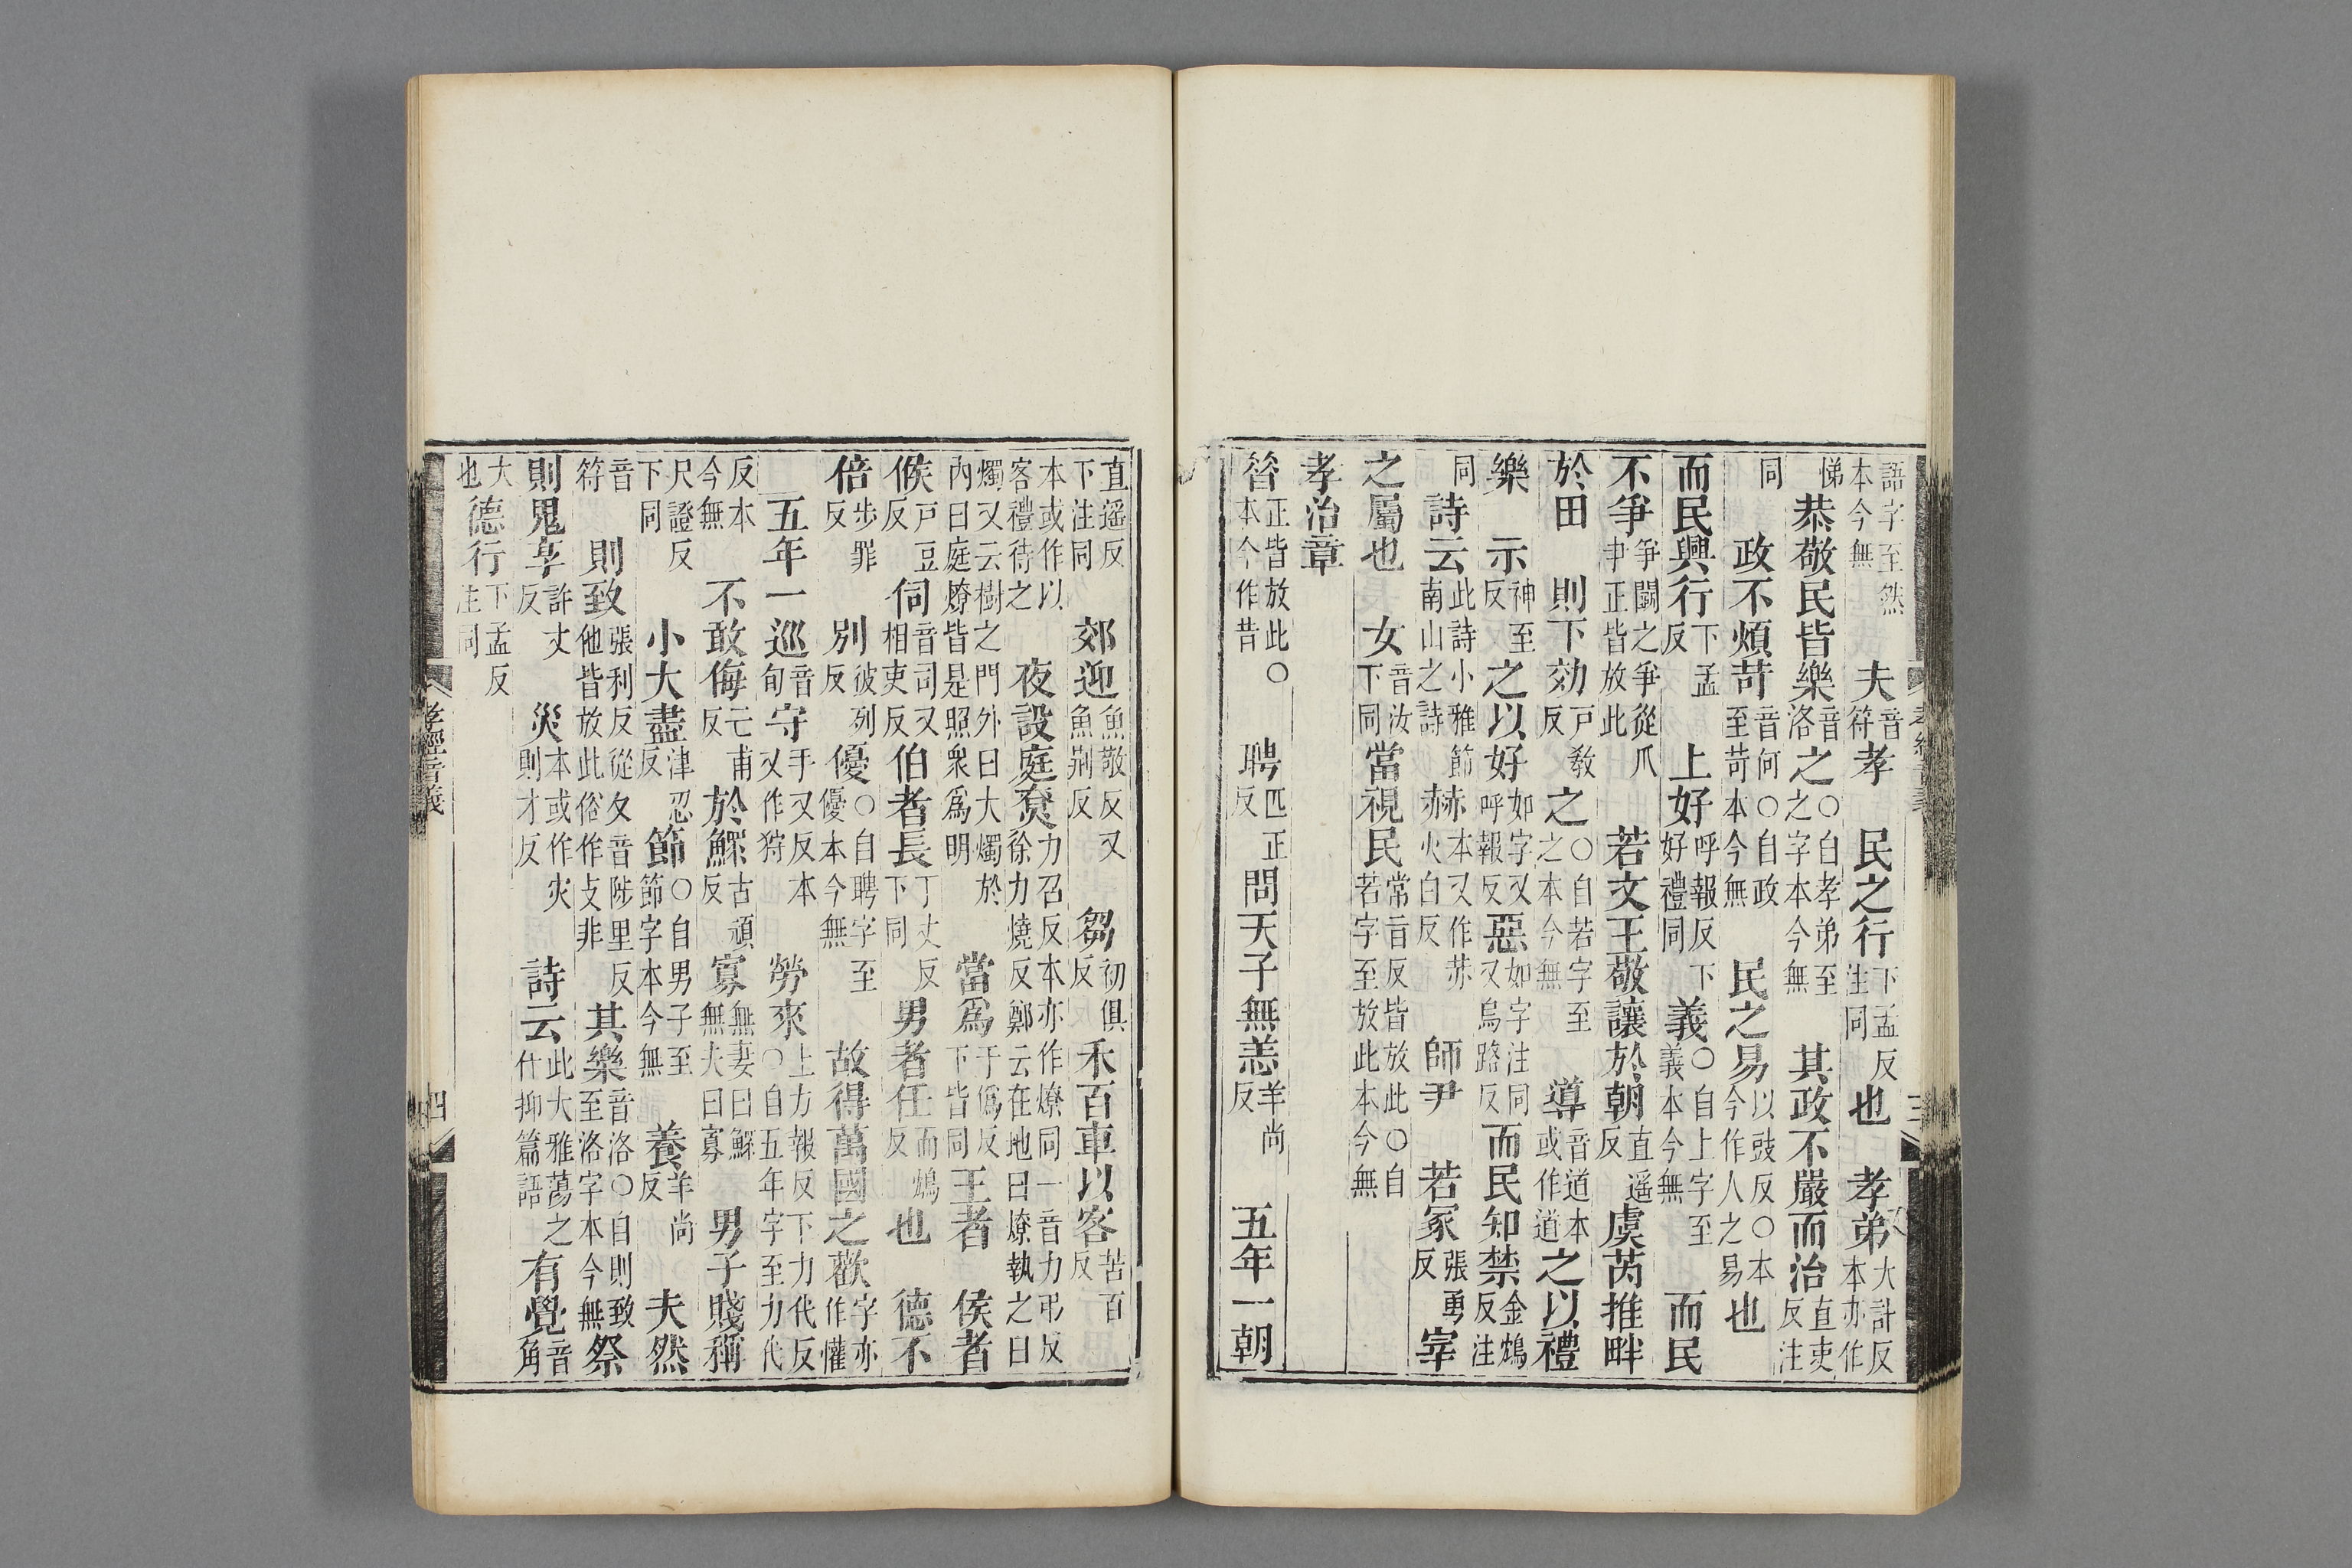 語字至然本今無夫音符孝民之行下孟反注同也孝弟大計反本亦作
悌恭敬民皆樂音洛之○自孝弟至之字本今無其政不嚴而治直吏反注
同政不煩苛音何○自政至苛本今無民之易以豉反○本今作人之易也
而民興行下孟反上好呼報反下好禮同義○自上字至義本今無而民
不爭爭鬬之爭從爪丯正皆放此若文王敬讓於朝直遥反虞芮推畔
於田則下效戸敎反之○自若字至之本今無導音道本或作道之以禮
樂示神至反之以好如字又呼報反惡如字注同又烏路反而民知禁金鴆反注
同詩云此詩小雅節南山之詩赫本又作㳍火白反師尹若冢張勇反宰
之屬也女音汝下同當視民常旨反皆放此○自若字至放此本今無
孝治章
昝正皆放此○本今作昔聘匹正反問天子無恙羊尚反五年一朝
直遥反下注同郊迎魚敬反又魚荆反芻初俱反禾百車以客苦百反
本或作以客禮待之夜設庭尞力召反本亦作燎同一音力弔反徐力燒反鄭云在地曰燎執之曰
燭又云樹之門外曰大燭於内曰庭燎皆是照衆爲明當爲于僞反下皆同王者侯者
候戸豆反伺音司又相吏反伯者長丁丈反下同男者任而鴆反也德不
倍步罪反别彼列反優○自聘字至優本今無故得萬國之歡字亦作懽
五年一巡音旬守手又反本又作狩勞來上力報反下力代反○自五年字至力代
反本今無不敢侮亡甫反於鰥古頑反寡無妻曰鰥無夫曰寡男子賤稱
尺證反下同小大盡津忍反節○自男子至節字本今無養羊尚反夫然
音符則致張利反從夊音陟里反他皆放此俗作攴非其樂音洛○自則致至洛字本今無祭
則鬼享許丈反災本或作灾則才反詩云此大雅蕩之什抑篇語有覺音角
大也德行下孟反注同
孝經音義
四
三